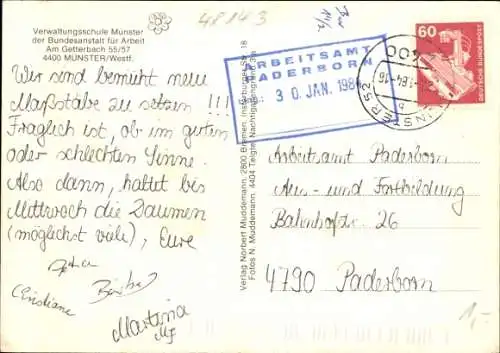 Verwaltungsschule Münster
der Bundesanstalt für Arbeit
Am Getterbach 55/57
4400 MÜNSTER/Westf.
48143
Wir sind bemüht neue
Maßstäbe zu setzen !!!
Fraglich ist, ob im guten
oder schlechten Sinne.
Also dann, haltet bis
Mittwoch die Daumen
(möglichst viele), Eure
Christiane
Martina
Verlag Norbert Muddemann, 2800 Bremen, Insterburger Str. 18
Fotos N. Muddemann, 4404 Telgte, Nachtigallengrund
ARBEITSAMT
PADERBORN
30. JAN. 1984
MÜNSTER 52
60
DEUTSCHE BUNDESPOST
Arbeitsamt Paderborn
Aus- und Fortbildung
Bahnhofstr. 26
4790 Paderborn
1,-